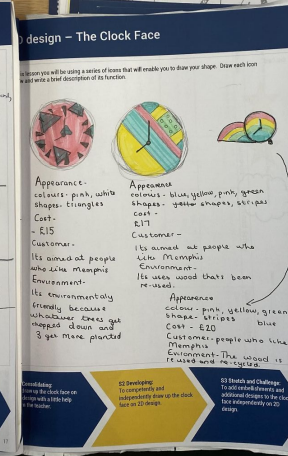 D design – The Clock Face
lesson you will be using a series of icons that will enable you to draw your shape. Draw each icon
and write a brief description of its function.
Appearance-
colours- pink, white
shapes- triangles
Cost-
- £15
Customer-
Its aimed at people
who like Memphis
Environment-
Its environmentaly
friendly because
whatever trees get
chopped down and
3 get more planted
Appearance
colours- blue, yellow, pink, green
shapes- shapes, stripes
cost-
£17
Customer-
Its aimed at people who
like Memphis
Environment-
Its uses wood thats been
re-used.
Appearance
colour- pink, yellow, green
blue
shape- stripes
Cost - £20
Customer- people who like
Memphis
Evironment- The wood is
reused and re-cycled.
up the clock face on
design with a little help
the teacher.
S2 Developing:
To competently and
independently draw up the clock
face on 2D design.
S3 Stretch and Challenge:
To add embellishments and
additional designs to the cloc
face independently on 2D
design.